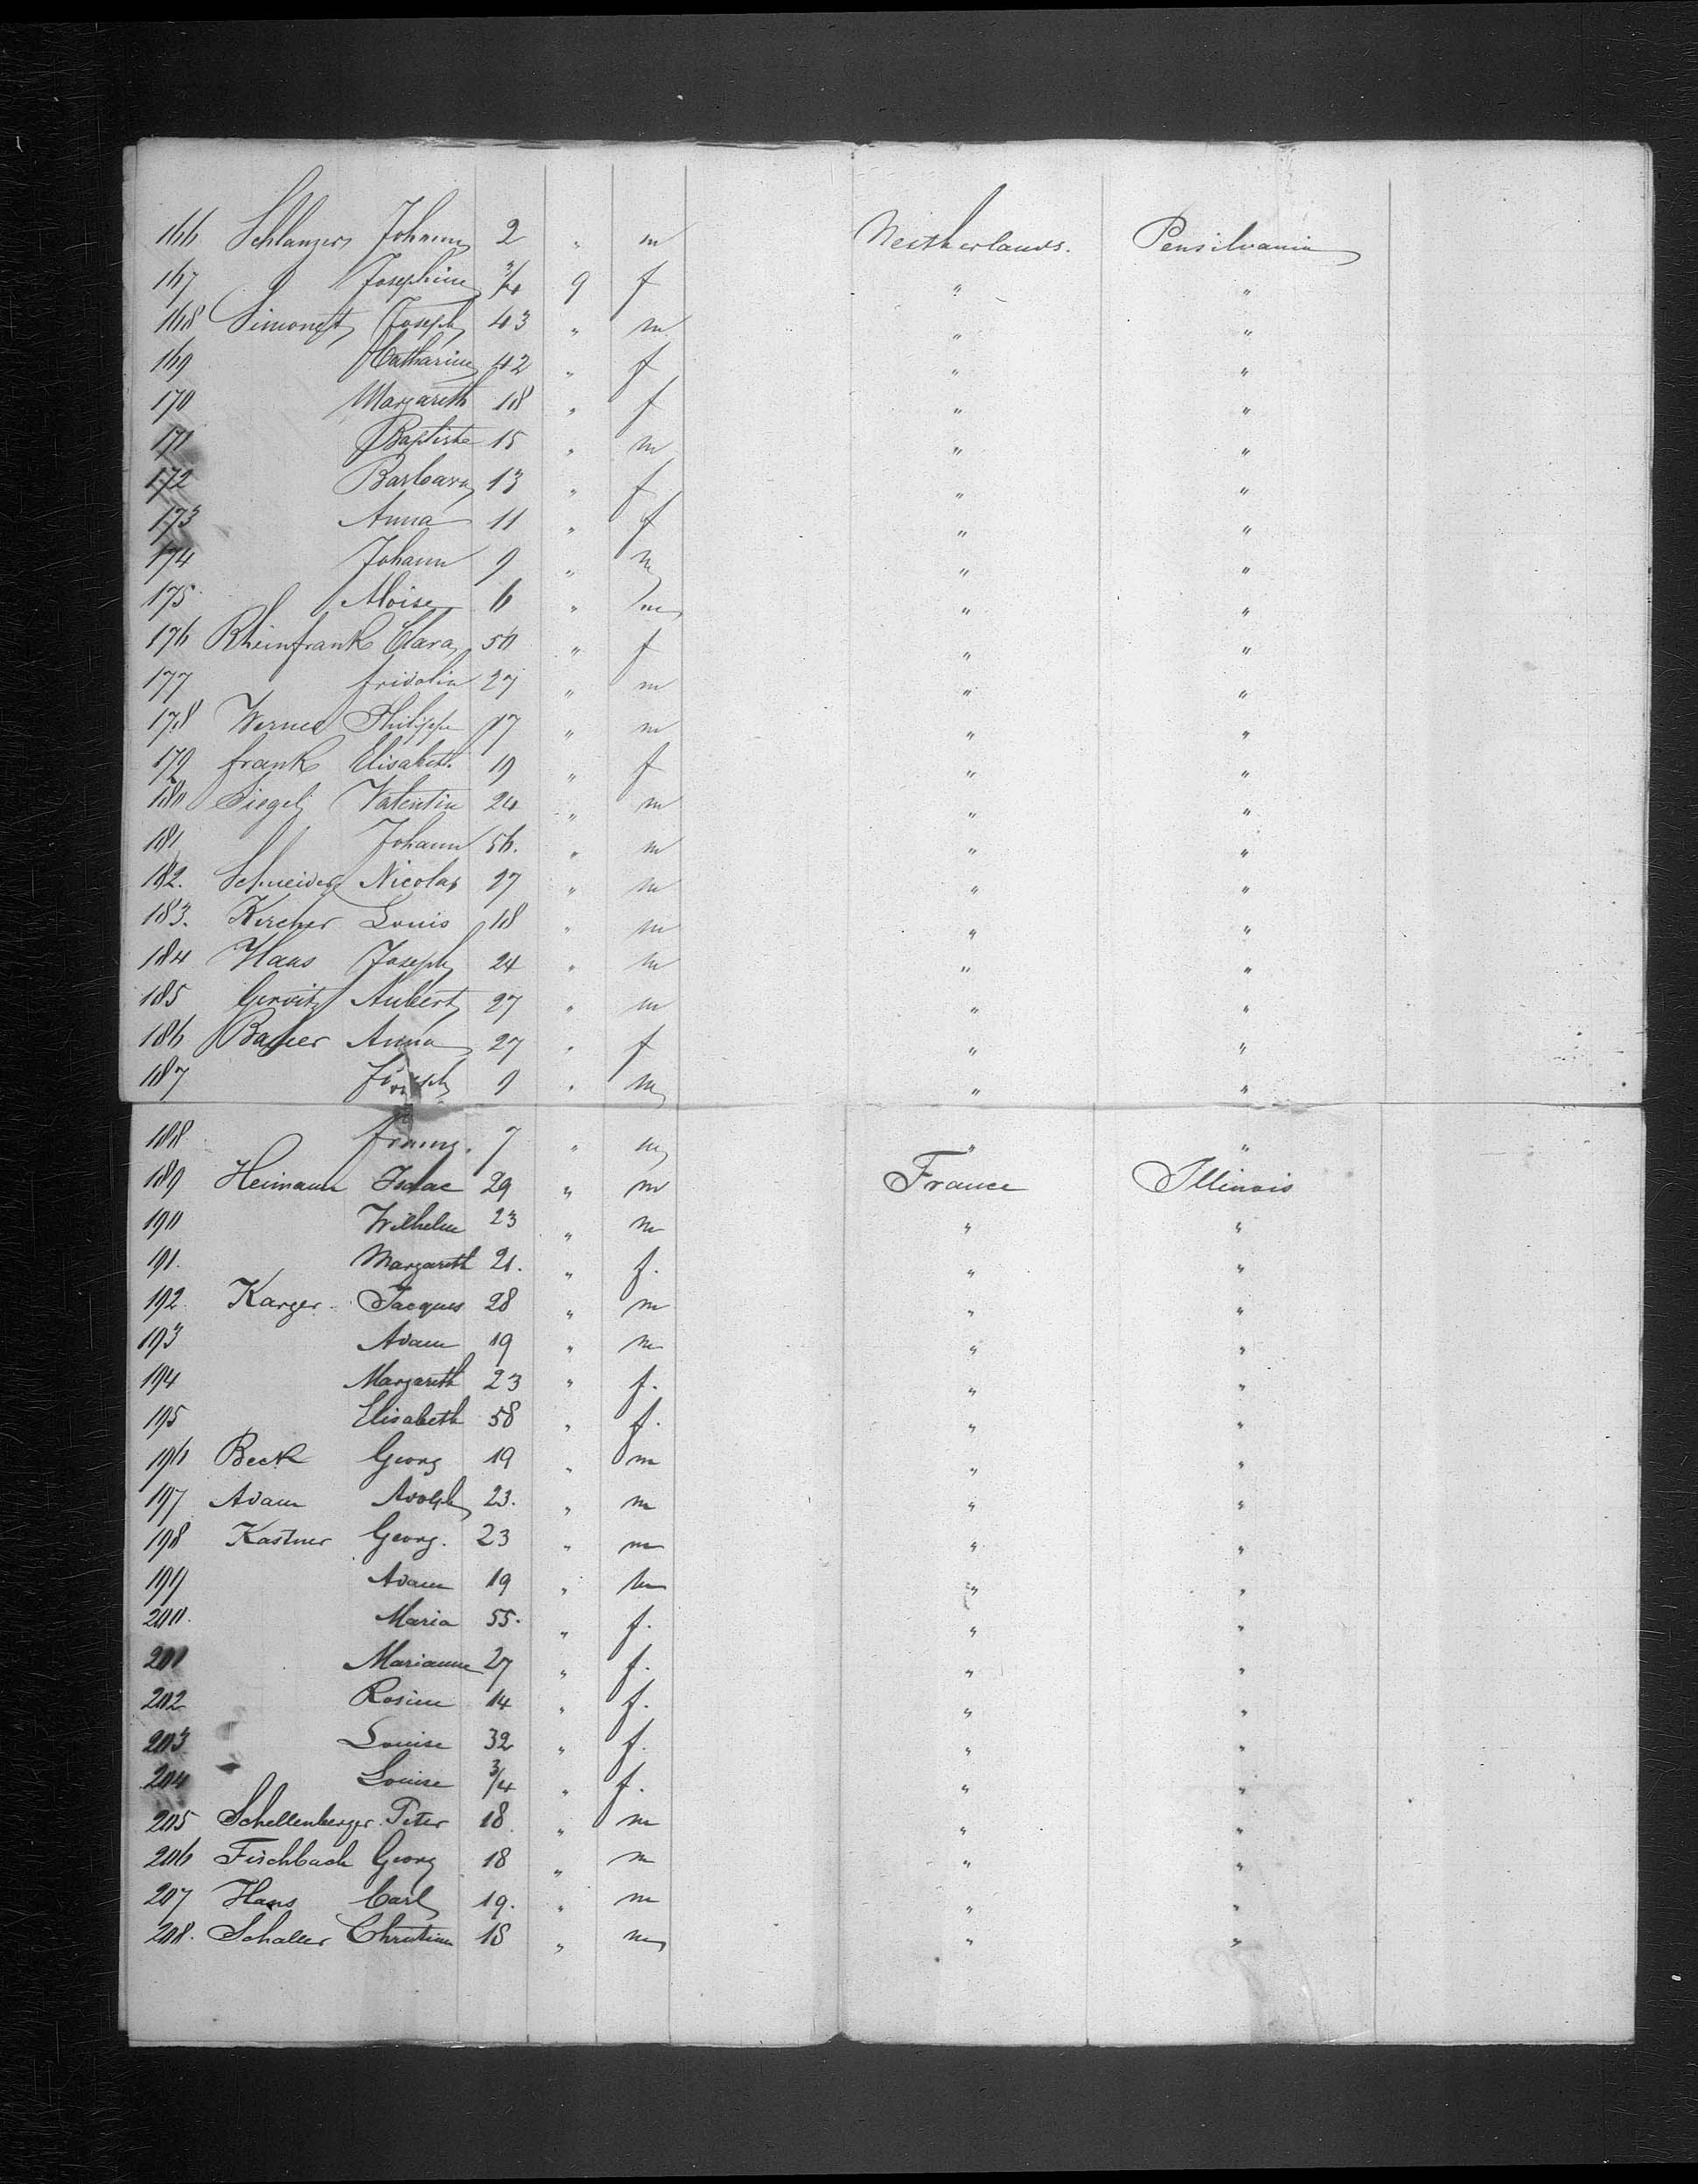 166 Schlanger Johann 2 " m Neitherlands. Pensilvania
167 Josephine 3/4 9 f " "
168 Simonet Joseph 43 " m " "
169 Catharine 42 " f " "
170 Margareth 18 " f " "
171 Baptiste 15 " m " "
172 Barbara 13 " f " "
173 Anna 11 " f " "
174 Johann 9 " m " "
175 Aloise 6 " m " "
176 Rheinfrank Clara 50 " f " "
177 fridolin 27 " m " "
178 Werner Philippe 17 " m " "
179 frank Elisabeth 19 " f " "
180 Siegel Valentin 24 " m " "
181 Johann 56. " m " "
182. Schneider Nicolas 27 " m " "
183. Kircher Louis 18 " m " "
184 Haus Joseph 24 " m " "
185 Aubert 27 " m " "
186 Bauer Anna 27 " f " "
187 Joseph 9 " m " "
188 franz. 7 " m " "
189 Heimann Isaac 29 " m France Illinois
190 Wilhelm 23 " m " "
191. Margareth 21. " f. " "
192. Karger. Jacques 28 " m " "
193 Adam 19 " m " "
194 Margareth 23 " f. " "
195 Elisabeth 58 " f. " "
196 Beck Georg 19 " m " "
197 Adam Adolph 23. " m " "
198 Kastner Georg. 23 " m " "
199 Adam 19 " m " "
200. Maria 55. " f. " "
201 Marianne 27 " f. " "
202 Rosine 14 " f. " "
203 Louise 32 " f. " "
204 Louise 3/4 " f. " "
205 Schellenberger. Peter 18. " m " "
206 Fischbach Georg 18 " m " "
207 Hans Carl 19. " m " "
208. Schaller Christian 18 " m " "